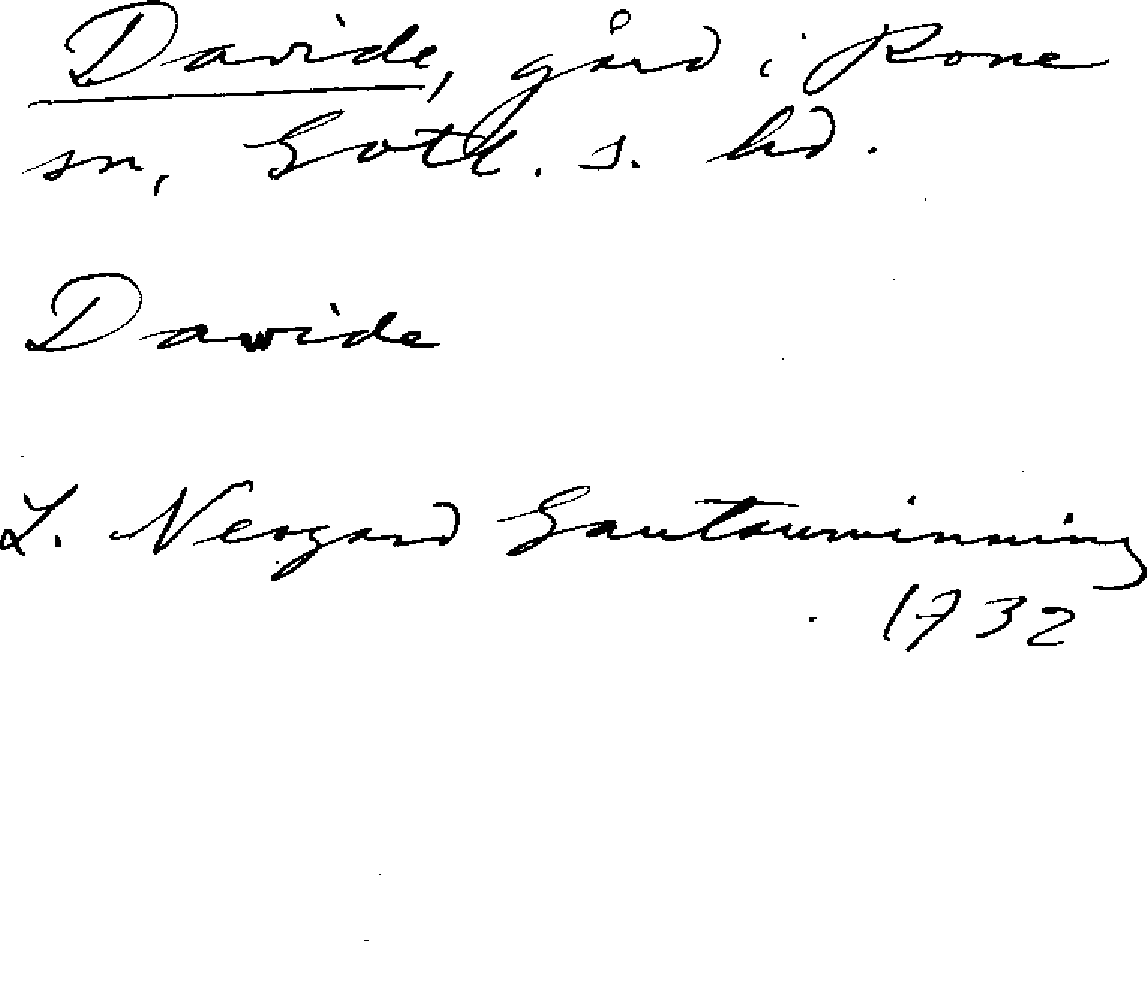 Davide, gård i Rone
sn, Gotl. s. hd.
Dawide
L. Neogard Gautauminning
1732